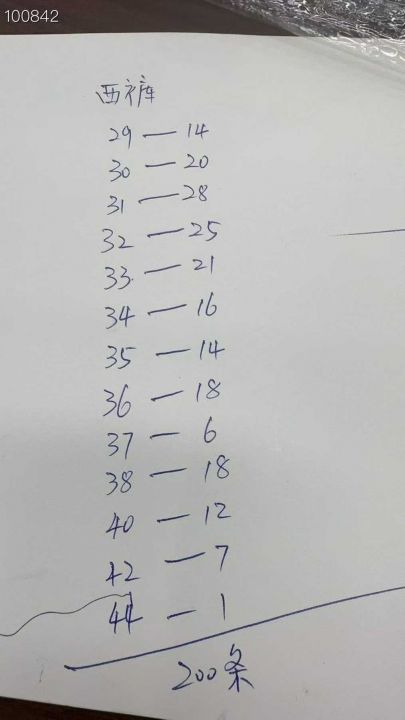 100842
西裤
29 — 14
30 — 20
31 — 28
32 — 25
33 — 21
34 — 16
35 — 14
36 — 18
37 — 6
38 — 18
40 — 12
42 — 7
44 — 1
200条